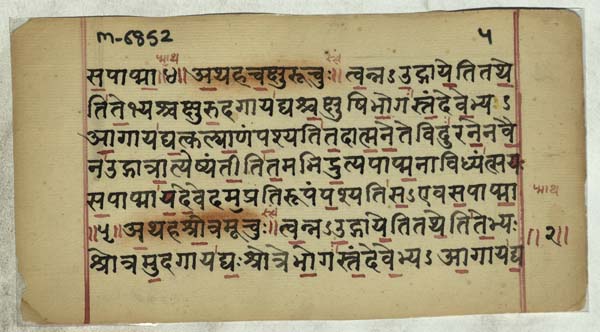 m-6852 ५
माध
स॒पा॒प्मा॒॥४॥ अथहचक्षुरूचुः॥ त्वन्नऽउद्गायेतितथे
तितेभ्यश्चक्षुरुदगायद्यश्चक्षुषिभोगस्तंदेवेभ्यऽ
आगायद्यत्कल्याणंपश्यतितदात्मनेतेविदुरनेनवै
नउद्गात्रात्येष्यंतीतितमभिद्रुत्यपाप्मनाविध्यंत्सयः
सपाप्मायदेवेदमप्रतिरूपंपश्यतिसऽएवसपाप्मा
माध
॥५॥ अथहश्रोत्रमूचुः॥ त्वन्नऽउद्गायेतितथेतितेभ्यः
॥२॥
श्रोत्रमुदगायद्यःश्रोत्रेभोगस्तंदेवेभ्यऽआगायद्य